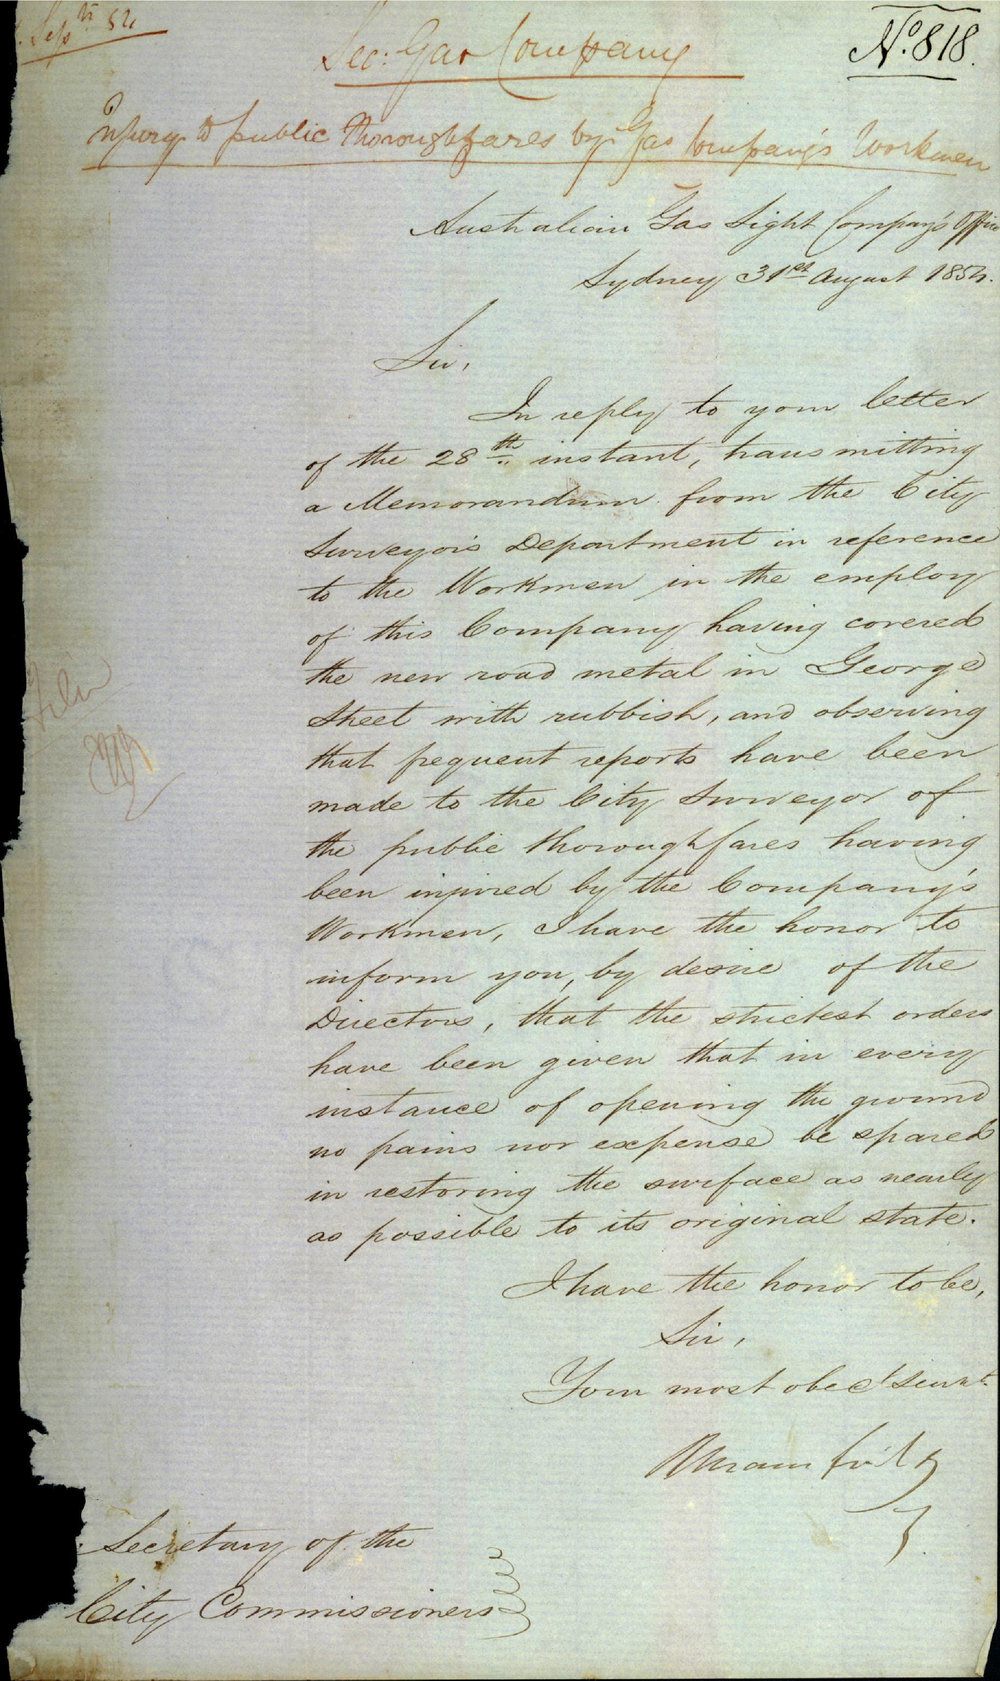 Sept 54
No. 818.
Sec: Gas Company
Injury to public thoroughfares by Gas Company's Workmen
Australian Gas Light Company's Office
Sydney 31st August 1854.
Sir,
In reply to your letter
of the 28th instant, transmitting
a Memorandum from the City
Surveyor's Department in reference
to the Workmen in the employ
of this Company having covered
the new road metal in George
Street with rubbish, and observing
that frequent reports have been
made to the City Surveyor of
the public thoroughfares having
been injured by the Company's
Workmen, I have the honor to
inform you, by desire of the
Directors, that the strictest orders
have been given that in every
instance of opening the ground
no pains nor expense be spared
in restoring the surface as nearly
as possible to its original state.
I have the honor to be,
Sir,
Your most obedt Servt
Secretary of the
City Commissioners